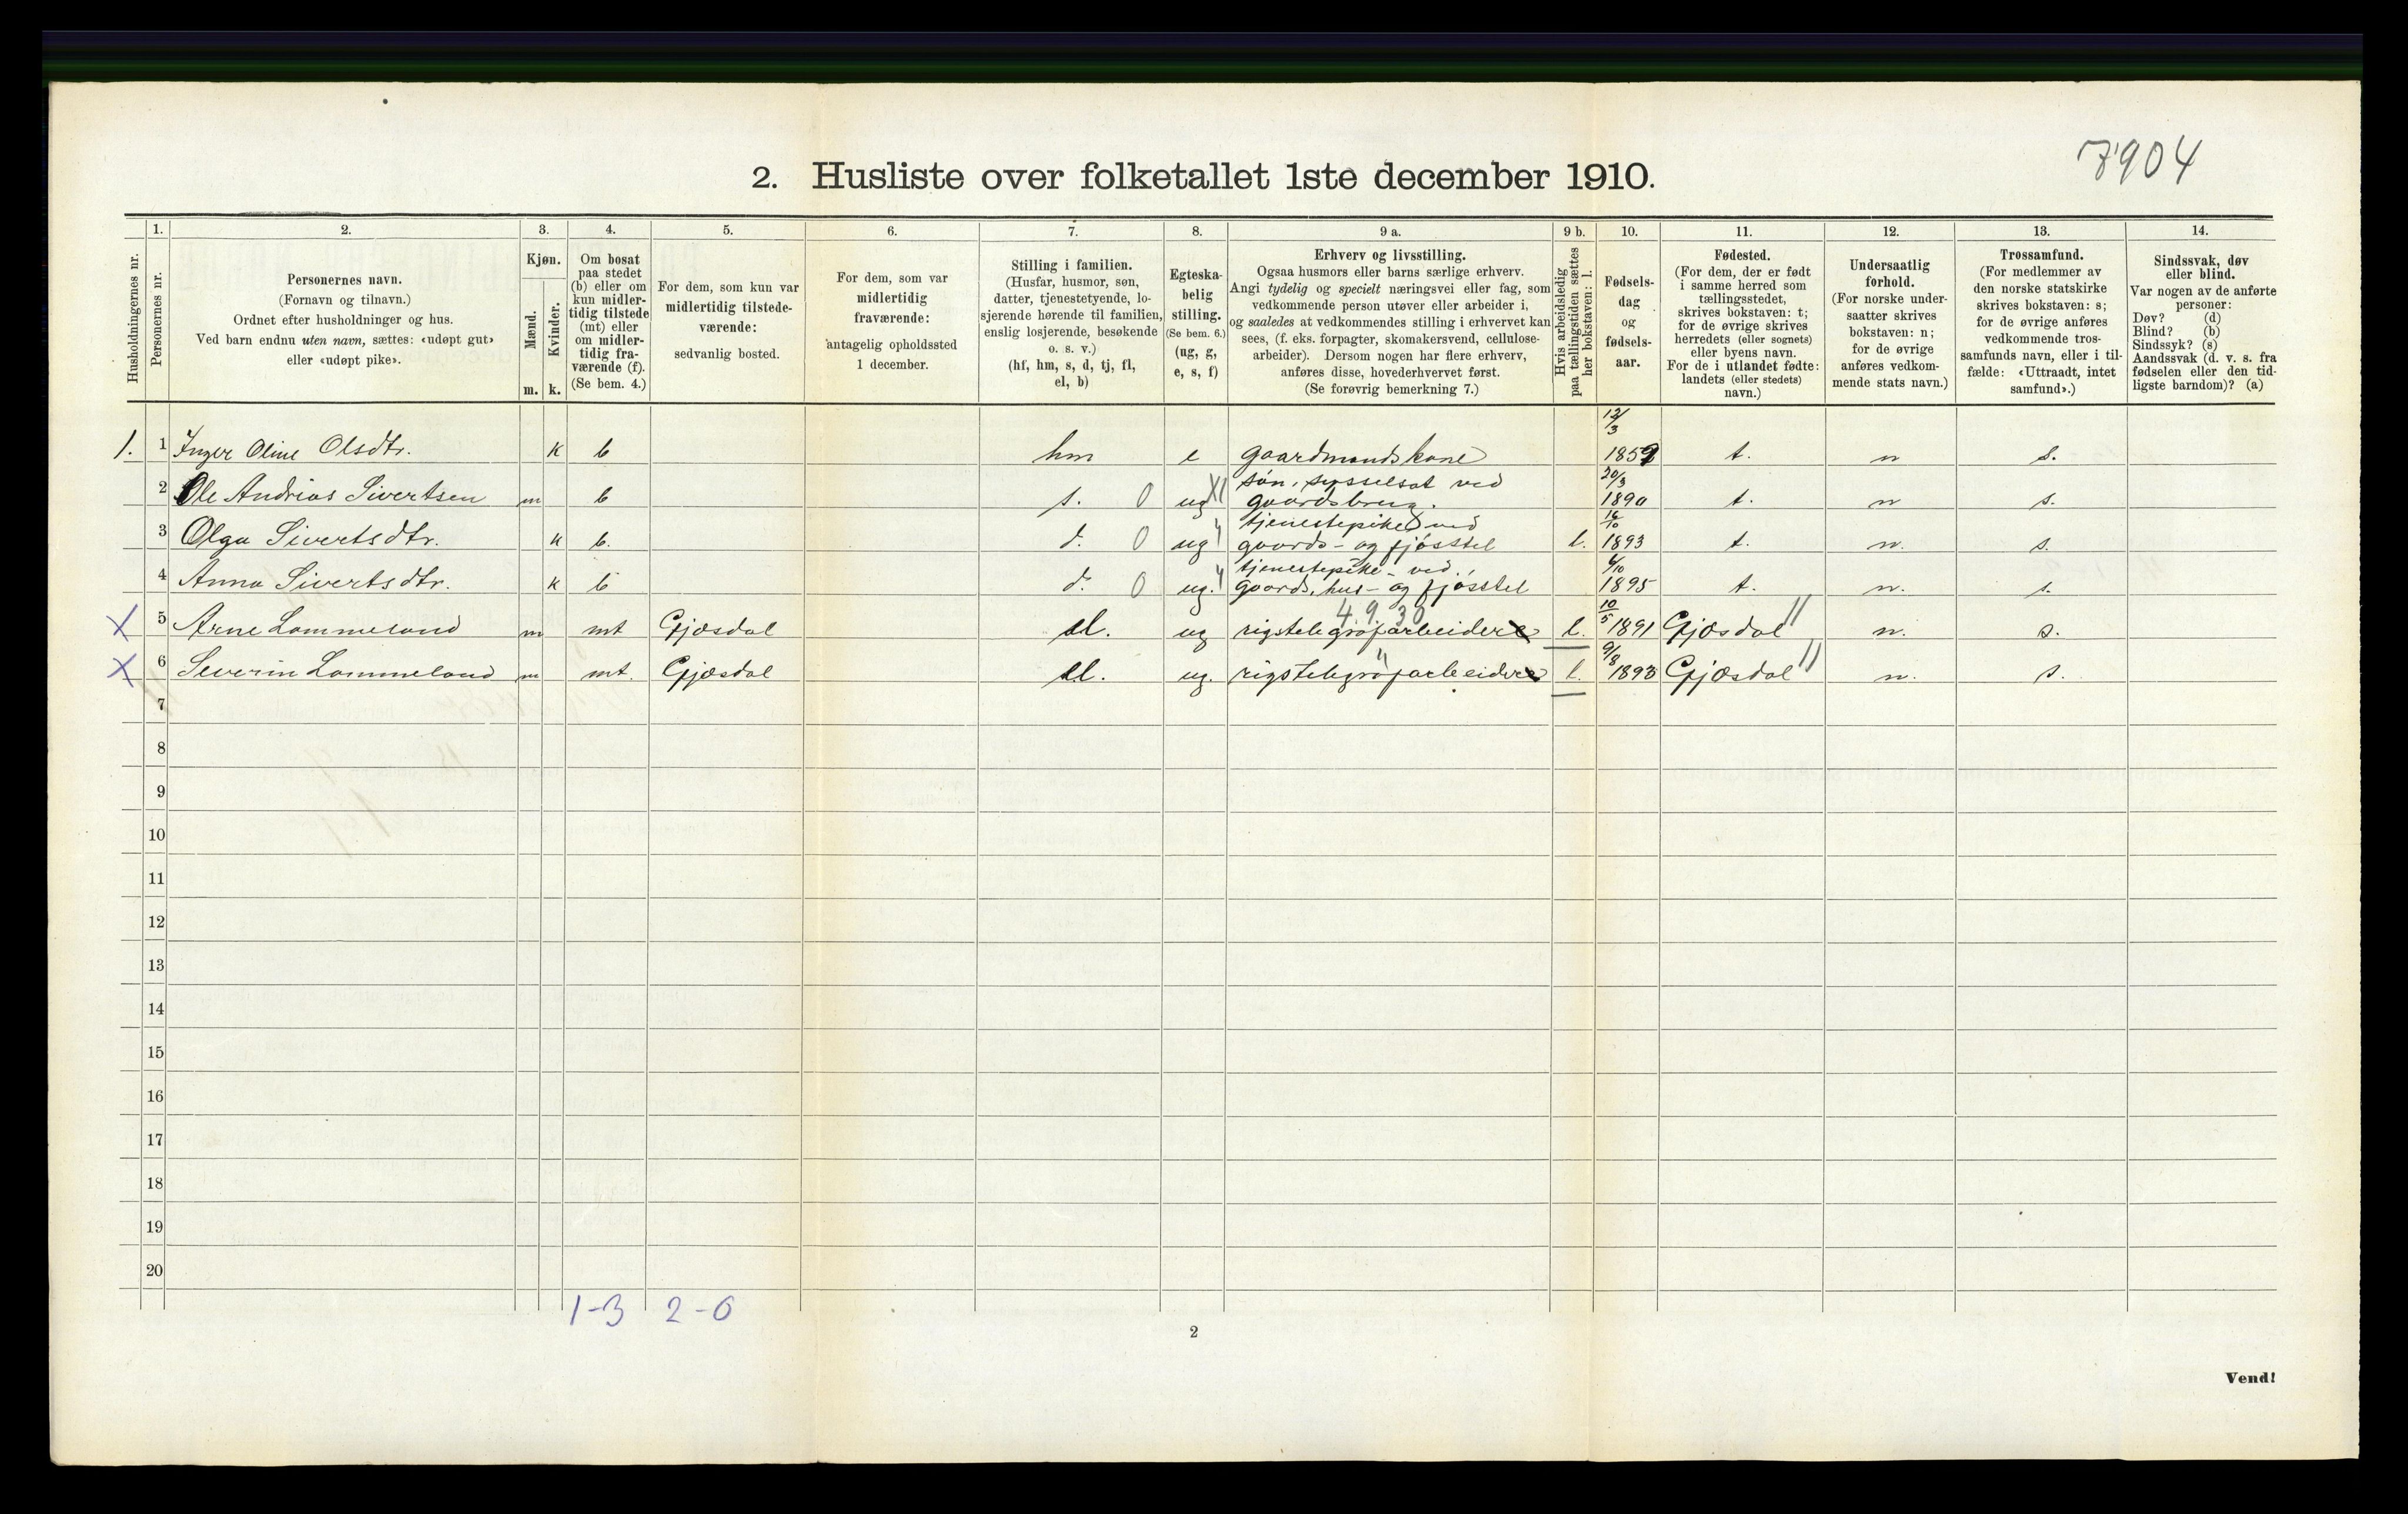 7904
2. Husliste over folketallet 1ste december 1910.
Husholdningernes nr.
1.
Personernes nr.
2.
Personernes navn.
(Fornavn og tilnavn.)
Ordnet efter husholdninger og hus.
Ved barn endnu uten navn, sættes: «udøpt gut»
eller «udøpt pike».
3.
Kjøn.
Mænd.
Kvinder.
m. k.
4.
Om bosat
paa stedet
(b) eller om
kun midler-
tidig tilstede
(mt) eller
om midler-
tidig fra-
værende (f).
(Se bem. 4.)
5.
For dem, som kun var
midlertidig tilstede-
værende:
sedvanlig bosted.
6.
For dem, som var
midlertidig
fraværende:
antagelig opholdssted
1 december.
7.
Stilling i familien.
(Husfar, husmor, søn,
datter, tjenestetyende, lo-
sjerende hørende til familien,
enslig losjerende, besøkende
o. s. v.)
(hf, hm, s, d, tj, fl,
el, b)
8.
Egteska-
belig
stilling.
(Se bem. 6.)
(ug, g,
e, s, f)
9 a.
Erhverv og livsstilling.
Ogsaa husmors eller barns særlige erhverv.
Angi tydelig og specielt næringsvei eller fag, som
vedkommende person utøver eller arbeider i,
og saaledes at vedkommendes stilling i erhvervet kan
sees, (f. eks. forpagter, skomakersvend, cellulose-
arbeider). Dersom nogen har flere erhverv,
anføres disse, hovederhvervet først.
(Se forøvrig bemerkning 7.)
9 b.
Hvis arbeidsledig
paa tællingstiden sættes
her bokstaven: l.
10.
Fødsels-
dag
og
fødsels-
aar.
11.
Fødested.
(For dem, der er født
i samme herred som
tællingsstedet,
skrives bokstaven: t;
for de øvrige skrives
herredets (eller sognets)
eller byens navn.
For de i utlandet fødte:
landets (eller stedets)
navn.)
12.
Undersaatlig
forhold.
(For norske under-
saatter skrives
bokstaven: n;
for de øvrige
anføres vedkom-
mende stats navn.)
13.
Trossamfund.
(For medlemmer av
den norske statskirke
skrives bokstaven: s;
for de øvrige anføres
vedkommende tros-
samfunds navn, eller i til-
fælde: «Uttraadt, intet
samfund».)
14.
Sindssvak, døv
eller blind.
Var nogen av de anførte
personer:
Døv? (d)
Blind? (b)
Sindssyk? (s)
Aandssvak (d. v. s. fra
fødselen eller den tid-
ligste barndom)? (a)
1. 1 Inger Oline Olsdtr. k b hm e gaardmandskone 12/3 1859 t. n s.
2 Ole Andrias Sivertsen m b s. 0 ug XI søn, sysselsat ved gaardsbrug. 20/3 1890 t. n s.
3 Olga Sivertsdtr. k b. d. 0 ug " tjenestepike ved gaards- og fjøsstel l. 16/10 1893 t. n. s.
4 Anna Sivertsdtr. k b d. 0 ug. " tjenestepike ved gaards, hus- og fjøsstel 6/10 1895 t. n. s.
X 5 Arne Lommeland m mt Gjæsdal el. ug 4 9 30 rigstelegrafarbeidere l. 10/5 1891 Gjæsdal 11 n. s.
X 6 Severin Lommeland m mt. Gjæsdal el. ug. " rigstelegrafarbeidere l. 9/8 1893 Gjæsdal 11 n. s.
7
8
9
10
11
12
13
14
15
16
17
18
19
20
1-3 2-0
2
Vend!